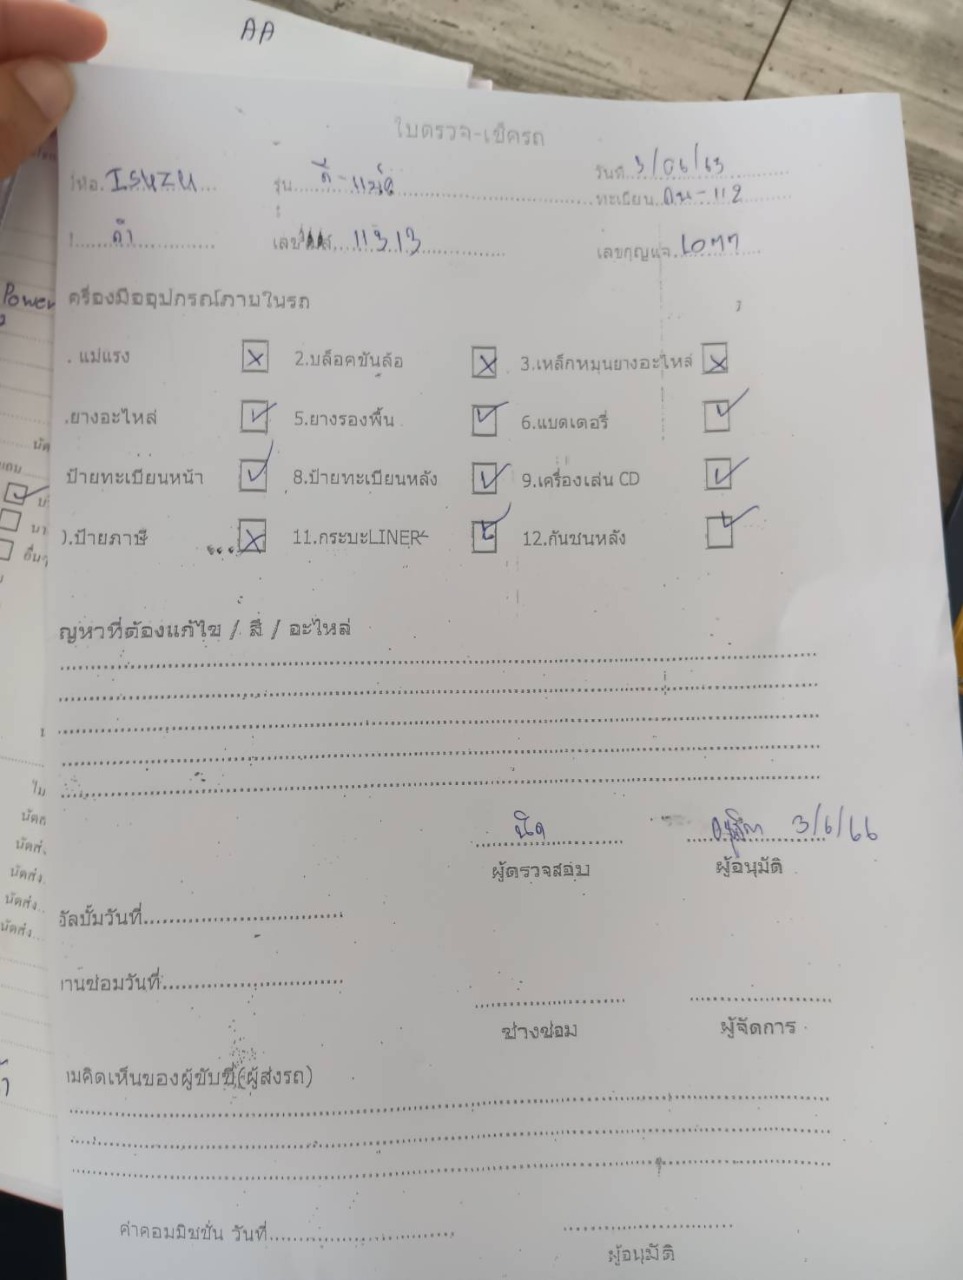 AA
ใบตรวจ-เช็ครถ
ISUZU รุ่น ดี-แม็ค วันที่ 3/06/63
ทะเบียน -112
ดำ เลข 11313 เลขกุญแจ
Power
ครื่องมืออุปกรณ์ภายในรถ
. แม่แรง ☒ 2.บล็อคขันล้อ ☒ 3.เหล็กหมุนยางอะไหล่ ☒
.ยางอะไหล่ ☑ 5.ยางรองพื้น ☑ 6.แบตเตอรี่ ☑
ป้ายทะเบียนหน้า ☑ 8.ป้ายทะเบียนหลัง ☑ 9.เครื่องเล่น CD ☑
).ป้ายภาษี ☒ 11.กระบะLINER ☑ 12.กันชนหลัง ☑
ญหาที่ต้องแก้ไข / สี / อะไหล่
3/6/66
ผู้ตรวจสอบ ผู้อนุมัติ
อัลบั้มวันที่
านซ่อมวันที่
ช่างซ่อม ผู้จัดการ
ามคิดเห็นของผู้ขับขี่(ผู้ส่งรถ)
ค่าคอมมิชชั่น วันที่
ผู้อนุมัติ